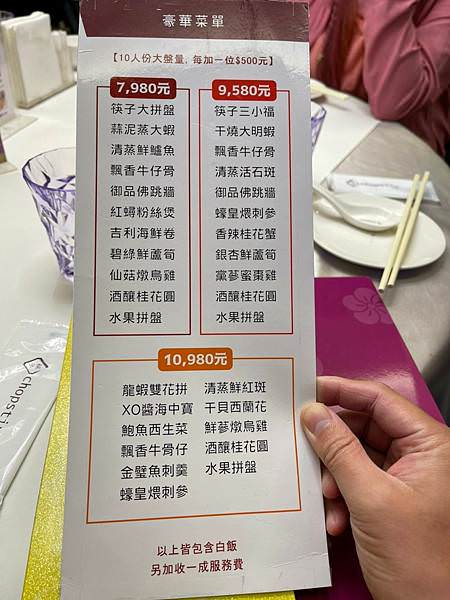 豪華菜單
【10人份大盤量, 每加一位$500元】
7,980元
筷子大拼盤
蒜泥蒸大蝦
清蒸鮮鱸魚
飄香牛仔骨
御品佛跳牆
紅蟳粉絲煲
吉利海鮮卷
碧綠鮮蘆筍
仙菇燉烏雞
酒釀桂花圓
水果拼盤
9,580元
筷子三小福
干燒大明蝦
飄香牛仔骨
清蒸活石斑
御品佛跳牆
蠔皇煨刺參
香辣桂花蟹
銀杏鮮蘆筍
黨蔘蜜棗雞
酒釀桂花圓
水果拼盤
10,980元
龍蝦雙花拼
XO醬海中寶
鮑魚西生菜
飄香牛骨仔
金璧魚刺羹
蠔皇煨刺參
清蒸鮮紅斑
干貝西蘭花
鮮蔘燉烏雞
酒釀桂花圓
水果拼盤
以上皆包含白飯
另加收一成服務費
chopsti